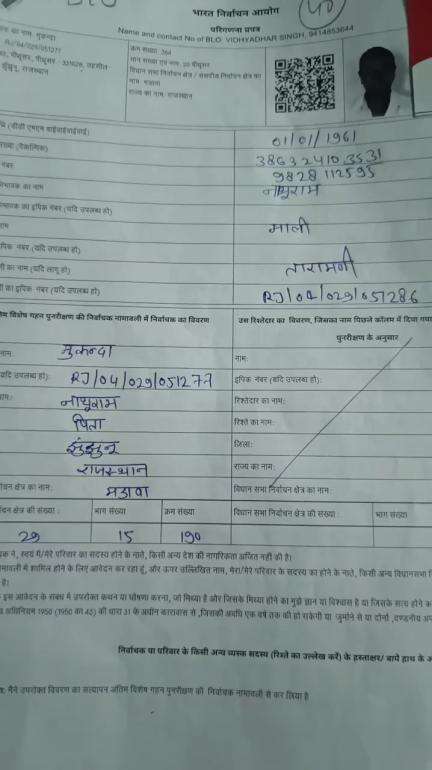 भारत निर्वाचन आयोग
परिगणना प्रपत्र
Name and contact No of BLO: VIDHYADHAR SINGH, 9414853644
नाम: मुकन्दा
RJ/04/029/051277
क्रम संख्या: 264
भाग संख्या एवं नाम: 20 पीथूसर
विधान सभा निर्वाचन क्षेत्र / संसदीय निर्वाचन क्षेत्र का
नाम: मंडावा
राज्य का नाम: राजस्थान
पीथूसर, पीथूसर, 331028, तहसील
झुंझुनू, राजस्थान
01/01/1961
(वैकल्पिक)
3863 2410 3531
नंबर
9828112595
का नाम
नाथूराम
का इपिक नंबर (यदि उपलब्ध हो)
माली
इपिक नंबर (यदि उपलब्ध हो)
का नाम (यदि लागू हो)
तारामणी
का इपिक नंबर (यदि उपलब्ध हो)
RJ/04/029/051286
विशेष गहन पुनरीक्षण की निर्वाचक नामावली में निर्वाचक का विवरण
उस रिश्तेदार का विवरण, जिसका नाम पिछले कॉलम में दिया गया
पुनरीक्षण के अनुसार
नाम:
मुकन्दा
नाम:
यदि उपलब्ध हो):
RJ/04/029/051277
इपिक नंबर (यदि उपलब्ध हो):
नाथूराम
रिश्तेदार का नाम:
पिता
रिश्ते का नाम:
झुंझुनू
जिला:
राजस्थान
राज्य का नाम:
क्षेत्र का नाम:
मंडावा
विधान सभा निर्वाचन क्षेत्र का नाम:
क्षेत्र की संख्या :
भाग संख्या
क्रम संख्या
विधान सभा निर्वाचन क्षेत्र की संख्या :
भाग संख्या
29
15
190
ने, स्वयं में/मेरे परिवार का सदस्य होने के नाते, किसी अन्य देश की नागरिकता अर्जित नहीं की है।
में शामिल होने के लिए आवेदन कर रहा हूं, और ऊपर उल्लिखित नाम, मेरा/मेरे परिवार के सदस्य का होने के नाते, किसी अन्य विधानसभा
है।
इस आवेदन के संबंध में उपरोक्त कथन या घोषणा करना, जो मिथ्या है और जिसके मिथ्या होने का मुझे ज्ञान या विश्वास है या जिसके सत्य होने
अधिनियम 1950 (1950 का 43) की धारा 31 के अधीन कारावास से ,जिसकी अवधि एक वर्ष तक की हो सकेगी या जुर्माने से या दोनों ,दण्डनीय
निर्वाचक या परिवार के किसी अन्य वयस्क सदस्य (रिश्ते का उल्लेख करें) के हस्ताक्षर/ बायें हाथ के
मैंने उपरोक्त विवरण का सत्यापन अंतिम विशेष गहन पुनरीक्षण की निर्वाचक नामावली से कर लिया है